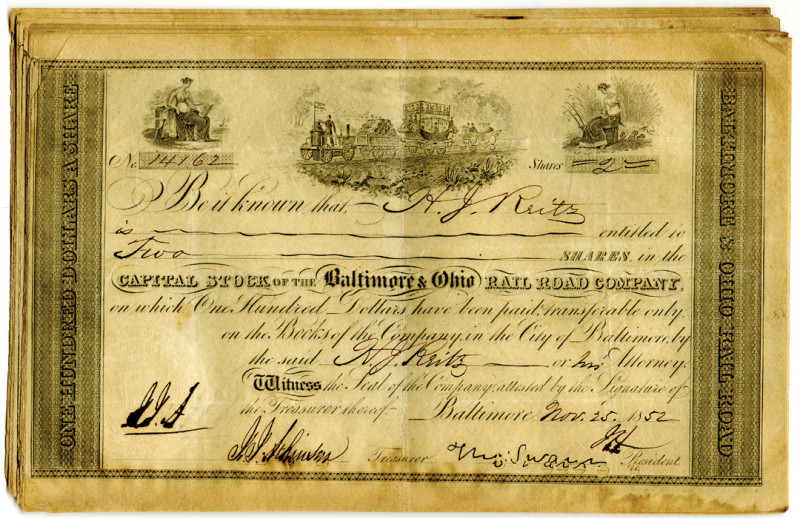 ONE HUNDRED DOLLARS A SHARE
No. 14162
Shares =2=
Be it known, that, H. J. Reitz
is entitled to
Two SHARES, in the
CAPITAL STOCK OF THE Baltimore & Ohio RAIL ROAD COMPANY,
on which One Hundred Dollars have been paid; transferable only,
on the Books of the Company, in the City of Baltimore, by
the said H. J. Reitz or his Attorney.
Witness the Seal of the Company, attested by the Signature of
the Treasurer thereof. Baltimore Nov. 25, 1852
Treasurer Tho. Swann President
BALTIMORE & OHIO RAIL ROAD